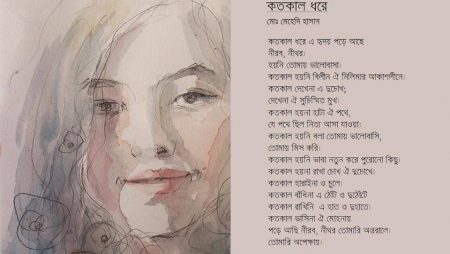 কতকাল ধরে
মোঃ মেহেদি হাসান
কতকাল ধরে এ হৃদয় পড়ে আছে
নীরব, নীথর।
হয়নি তোমায় ভালোবাসা।
কতকাল হয়নি বিলীন ঐ নিলিমার আকাশলীনে।
কতকাল দেখেনা এ দুচোখ;
দেখেনা ঐ সুস্মিত মুখ।
কতকাল হয়না হাটা ঐ পথে,
যে পথে ছিল নিত্য আসা যাওয়া।
কতকাল হয়নি বলা তোমায় ভালোবাসি,
তোমায় মিস করি।
কতকাল হয়নি ভাবা নতুন করে পুরোনো কিছু।
কতকাল হয়না রাখা চোখ ঐ দুচোখে।
কতকাল হারাইনা ও চুলে।
কতকাল বাঁধিনা এ ঠোঁট ও দুঠোঁটে
কতকাল রাখিনি এ হাত ও দুহাতে।
কতকাল ভাসিনা ঐ মোহনায়
পড়ে আছি নীরব, নীথর তোমারি অন্তরালে।
তোমারি অপেক্ষায়।